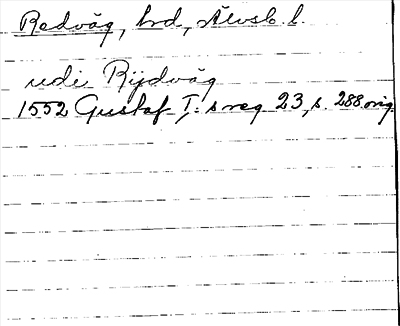 Redväg, hrd, Älvsb. l.
udi Rijdväg
1552 Gustaf I:s reg 23, s. 288 orig.